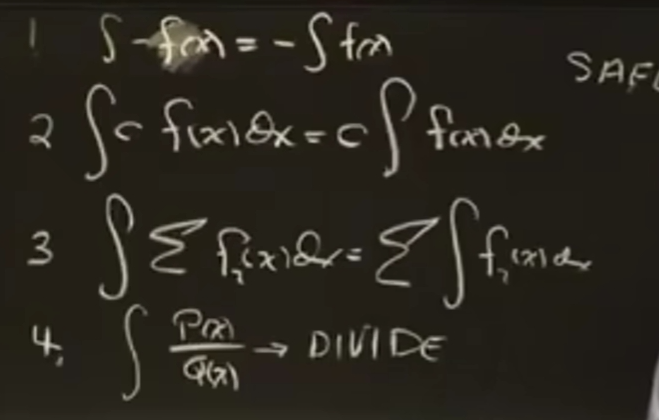 1 ∫ -f(x) = - ∫ f(x)
SAFE
2 ∫ c f(x) dx = c ∫ f(x) dx
3 ∫ Σ fᵢ(x) dx = Σ ∫ fᵢ(x) dx
4. ∫ P(x)/Q(x) → DIVIDE